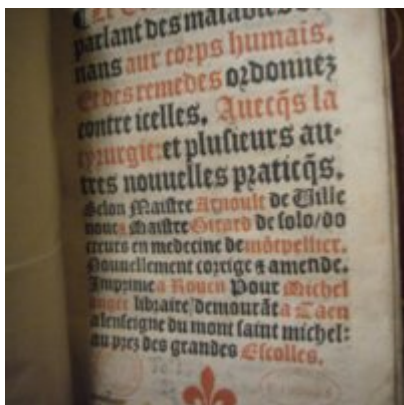 parlant des maladies
nans aux corps humais.
Et des remedes ordonnez
contre icelles. Auecq̃s la
cyrurgie: et plusieurs au-
tres nouuelles praticq̃s.
Selon Maistre Arnoult de Ville
noue⁊ Maistre Girard de solo/do
cteurs en medecine de mõtpellier.
Nouuellement corrige ⁊ amende.
Imprime a Rouen Pour Michel
angier libraire/demourãt a Caen
a lenseigne du mont saint michel:
au prez des grandes Escolles.